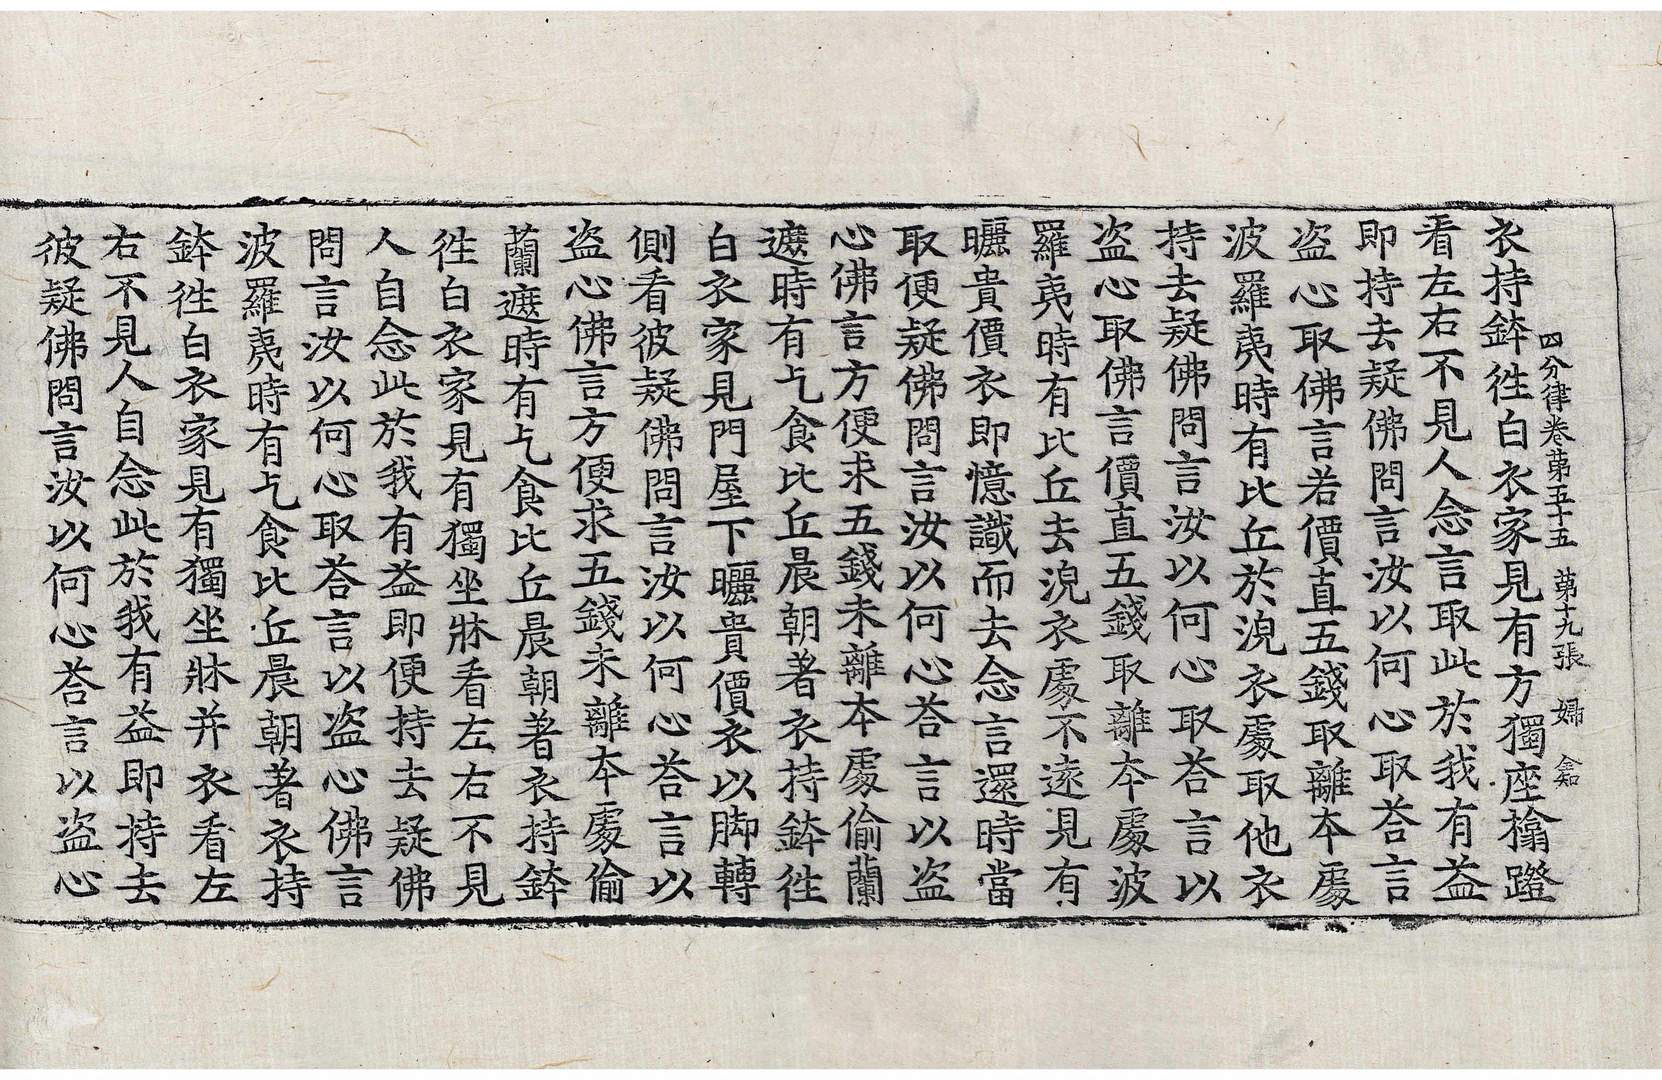 四分律卷苐五十五 苐十九張 婦
衣持鉢徃白衣家見有方獨座榻蹬
看左右不見人念言取此於我有益
即持去疑佛問言汝以何心取荅言
盗心取佛言若價直五錢取離本處
波羅夷時有比丘於浣衣處取他衣
持去疑佛問言汝以何心取荅言以
盗心取佛言價直五錢取離本處波
羅夷時有比丘去浣衣處不遠見有
曬貴價衣即憶識而去念言還時當
取便疑佛問言汝以何心荅言以盗
心佛言方便求五錢未離本處偷蘭
遮時有乞食比丘晨朝著衣持鉢徃
白衣家見門屋下曬貴價衣以脚轉
側看彼疑佛問言汝以何心荅言以
盗心佛言方便求五錢未離本處偷
蘭遮時有乞食比丘晨朝著衣持鉢
徃白衣家見有獨坐牀看左右不見
人自念此於我有益即便持去疑佛
問言汝以何心取荅言以盗心佛言
波羅夷時有乞食比丘晨朝著衣持
鉢徃白衣家見有獨坐牀并衣看左
右不見人自念此於我有益即持去
彼疑佛問言汝以何心荅言以盗心